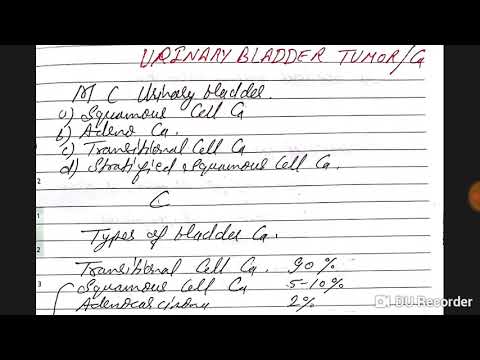 URINARY BLADDER TUMOR/Ca
M C Urinary bladder.
a) Squamous Cell Ca
b) Adeno Ca.
c) Transitional Cell Ca
d) Stratified Squamous Cell Ca.
C
Types of bladder Ca.
Transitional Cell Ca. 90%
Squamous Cell Ca 5-10%
Adenocarcinoma 2%
DU Recorder
2
1
2
3